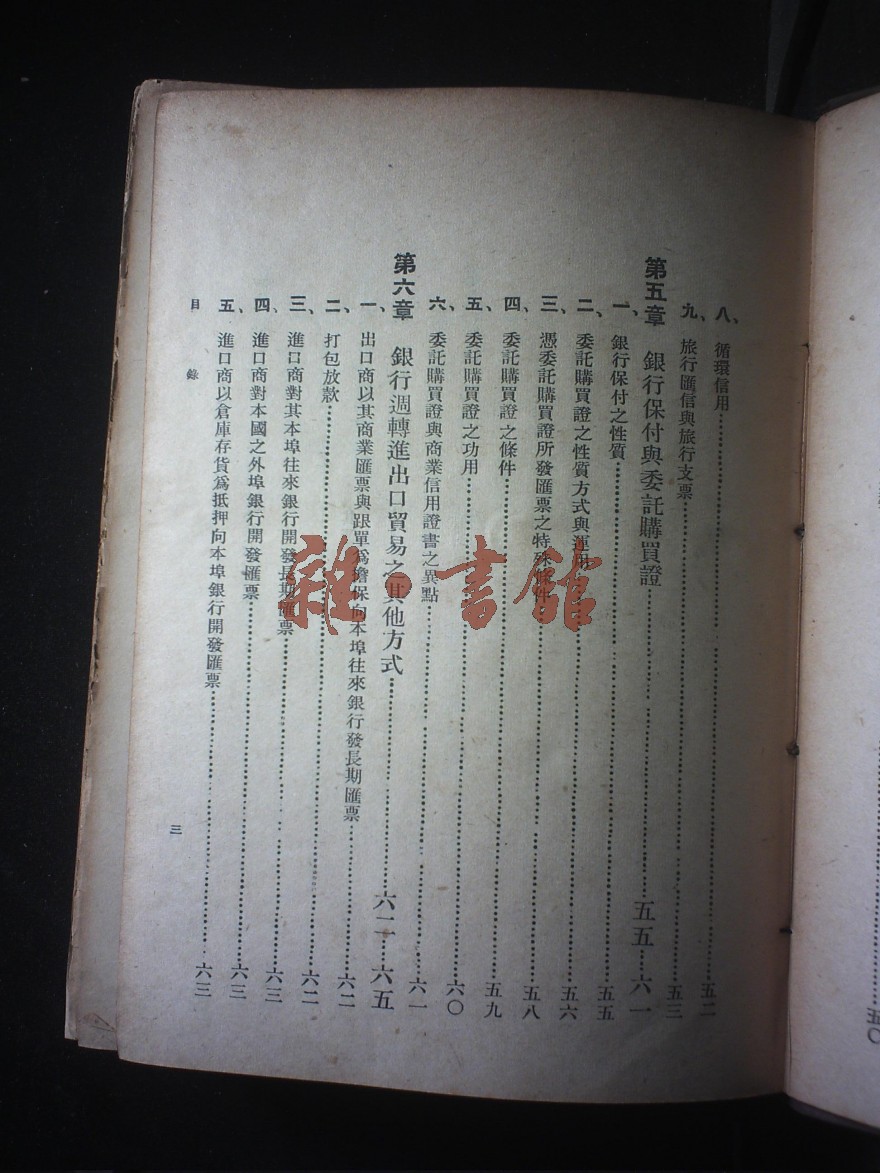 八、循環信用……五二
九、旅行匯信與旅行支票……五三
第五章 銀行保付與委託購買證……五五…六一
一、銀行保付之性質……五五
二、委託購買證之性質方式與運用……五六
三、憑委託購買證所發匯票之特殊條件……五八
四、委託購買證之條件……五九
五、委託購買證之功用……六〇
六、委託購買證與商業信用證書之異點……六一
第六章 銀行週轉進出口貿易之其他方式……六二…六五
一、出口商以其商業匯票與跟單爲擔保向本埠往來銀行發長期匯票……六二
二、打包放款……六二
三、進口商對其本埠往來銀行開發長期匯票……六三
四、進口商對本國之外埠銀行開發匯票……六三
五、進口商以倉庫存貨爲抵押向本埠銀行開發匯票……六三
目錄
三
雜·書館
五〇